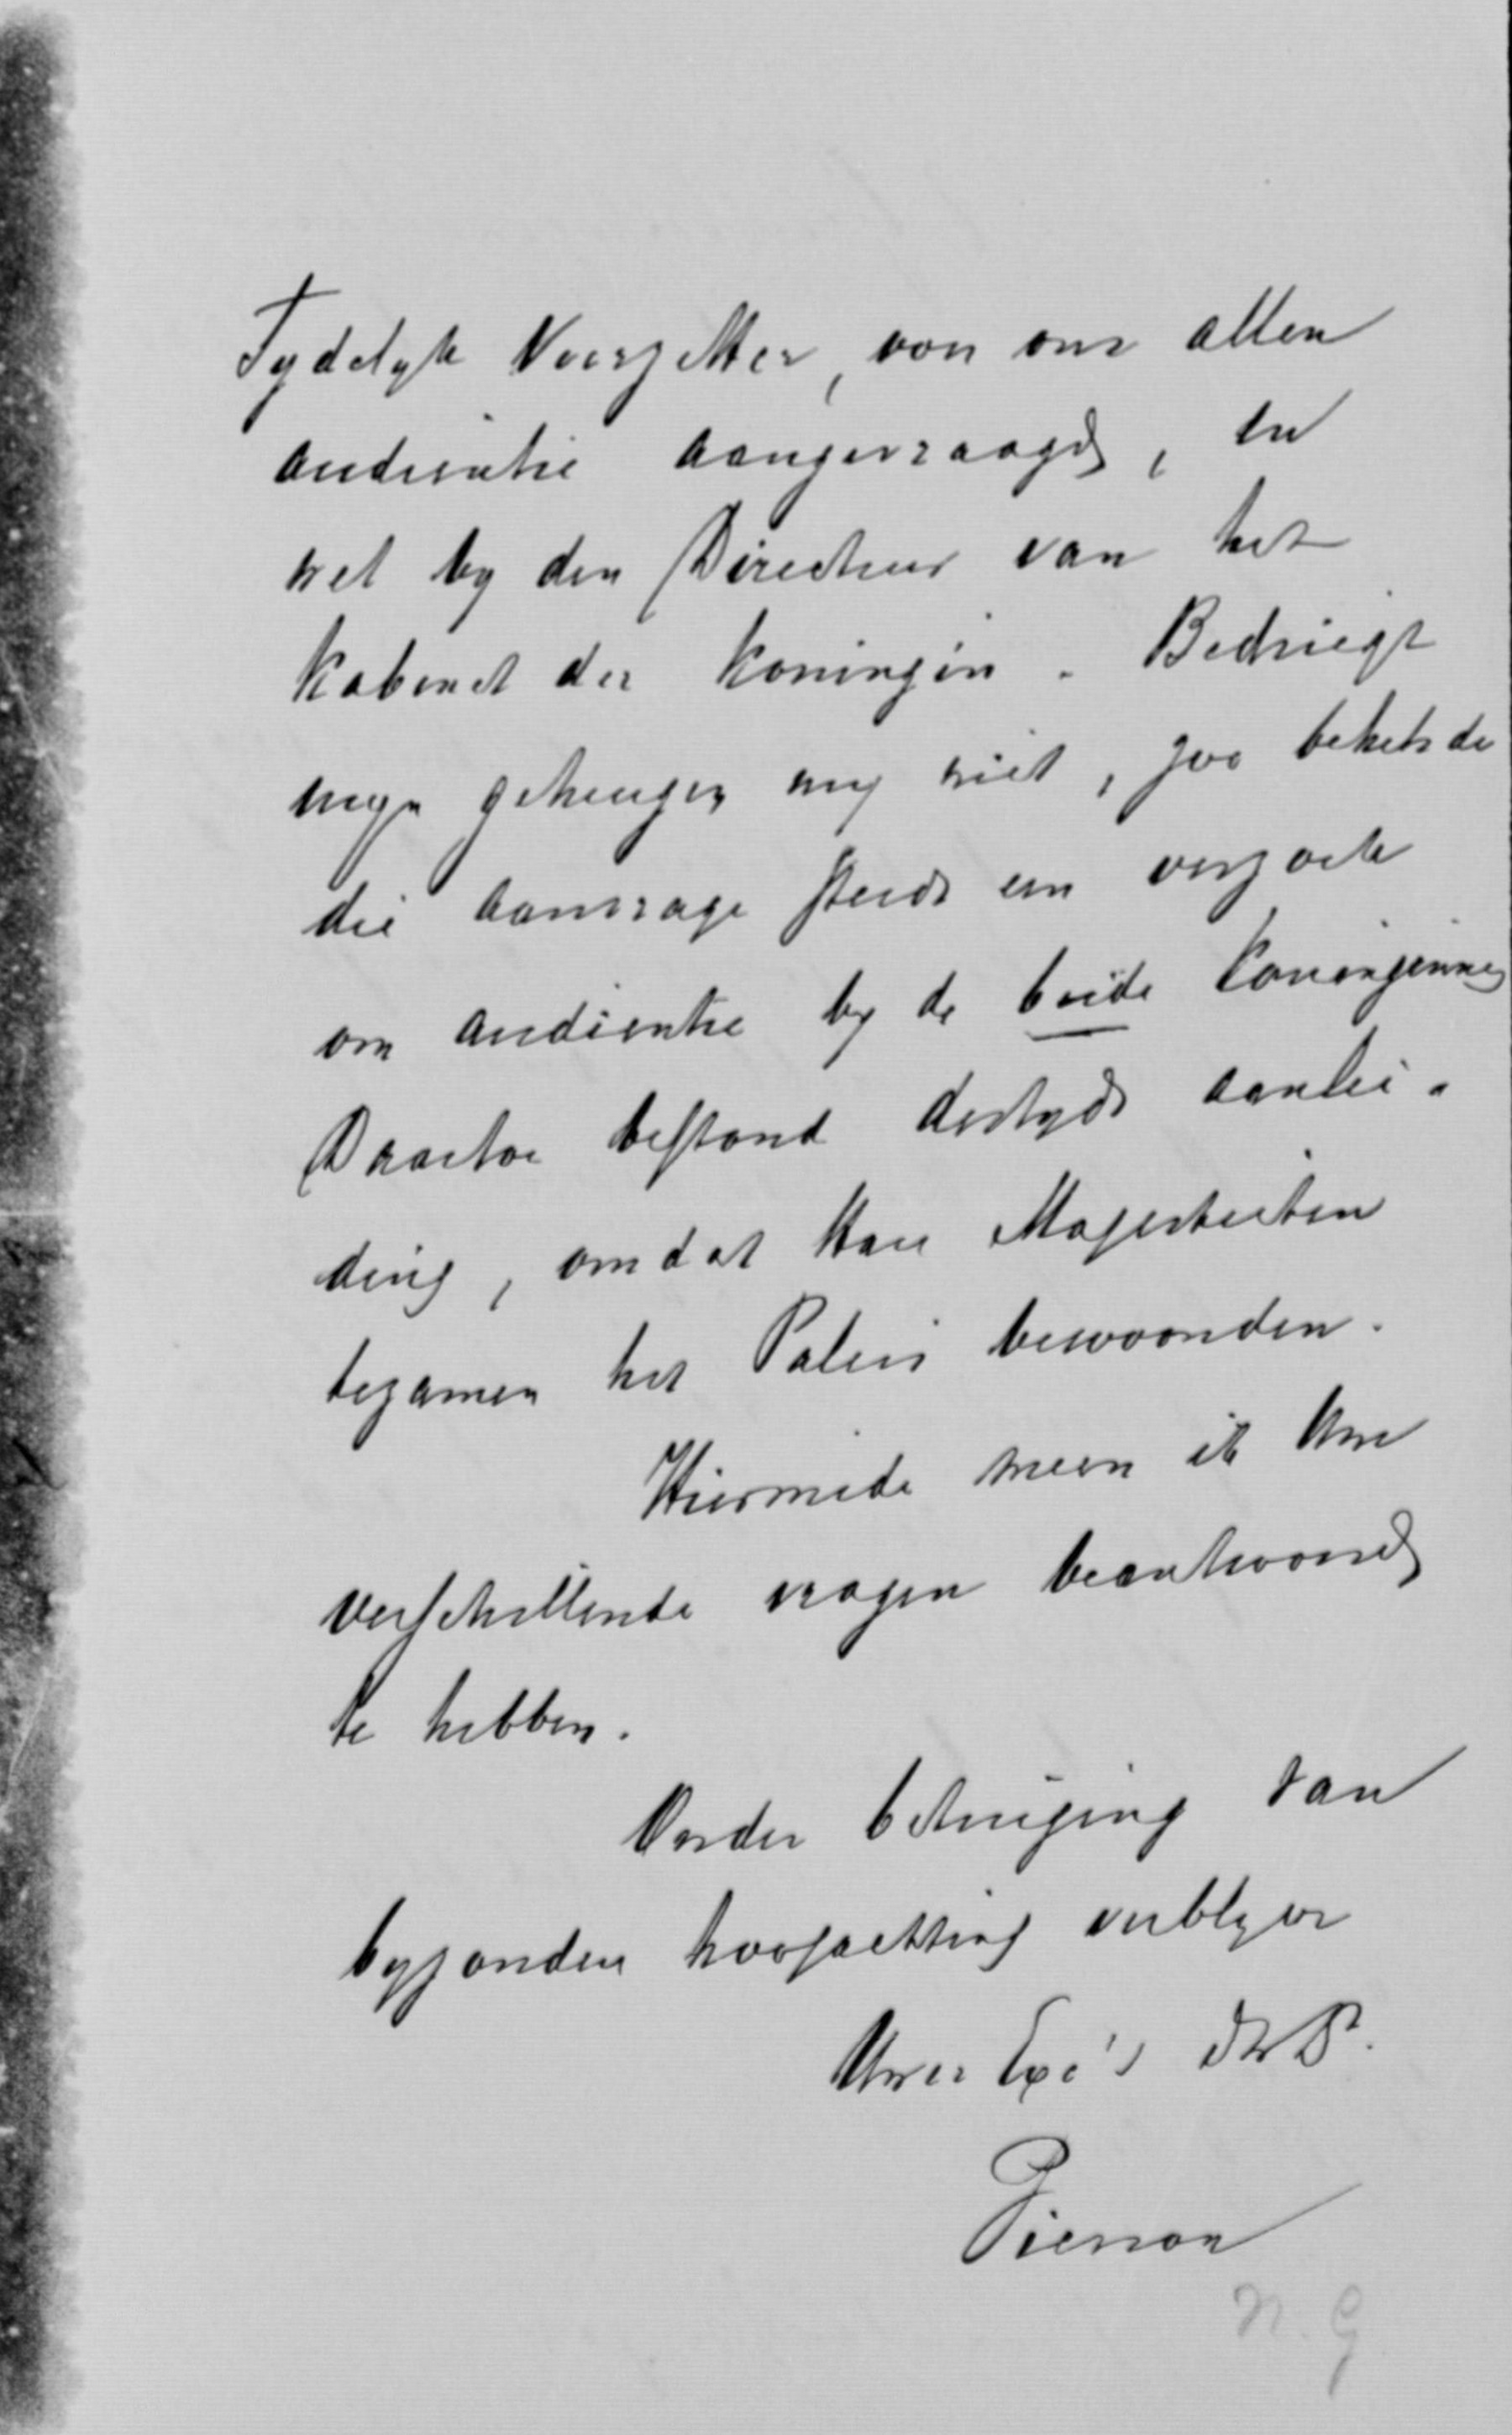 Tydelyk Voorzitter, voor ons allen
audientie aangevraagd, en
wel by den Directeur van het
Kabinet der Koningin. Bedriegt
myn geheugen my niet, zoo behelsde
die aanvrage steeds een verzoek
om audientie by de beide Koninginnen
Daartoe bestond destyds aanlei-
ding, omdat Hare Majesteiten
tezamen het Paleis bewoonden.
Hiermede meen ik Uwe
verschillende vragen beantwoord
te hebben.
Onder betuiging van
byzondere hoogachting verblyve
Uwer Exc's
Pierson
N. G